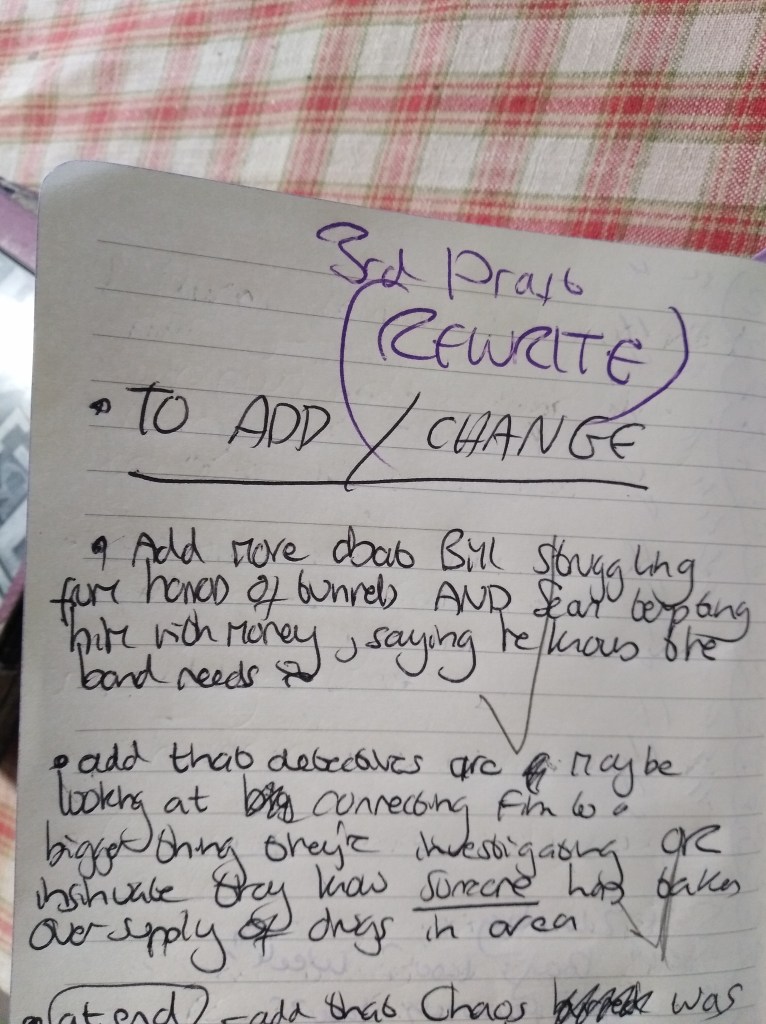 3rd Draft
(REWRITE)
• TO ADD / CHANGE
• Add more about Bill struggling
of tunnels AND Sean tempting
him with money, saying he knows the
band needs it
• add that detectives are maybe
looking at connecting Finn to a
bigger thing they're investigating OR
insinuate they know someone has taken
over supply of drugs in area
• (at end) - add that Chaos was